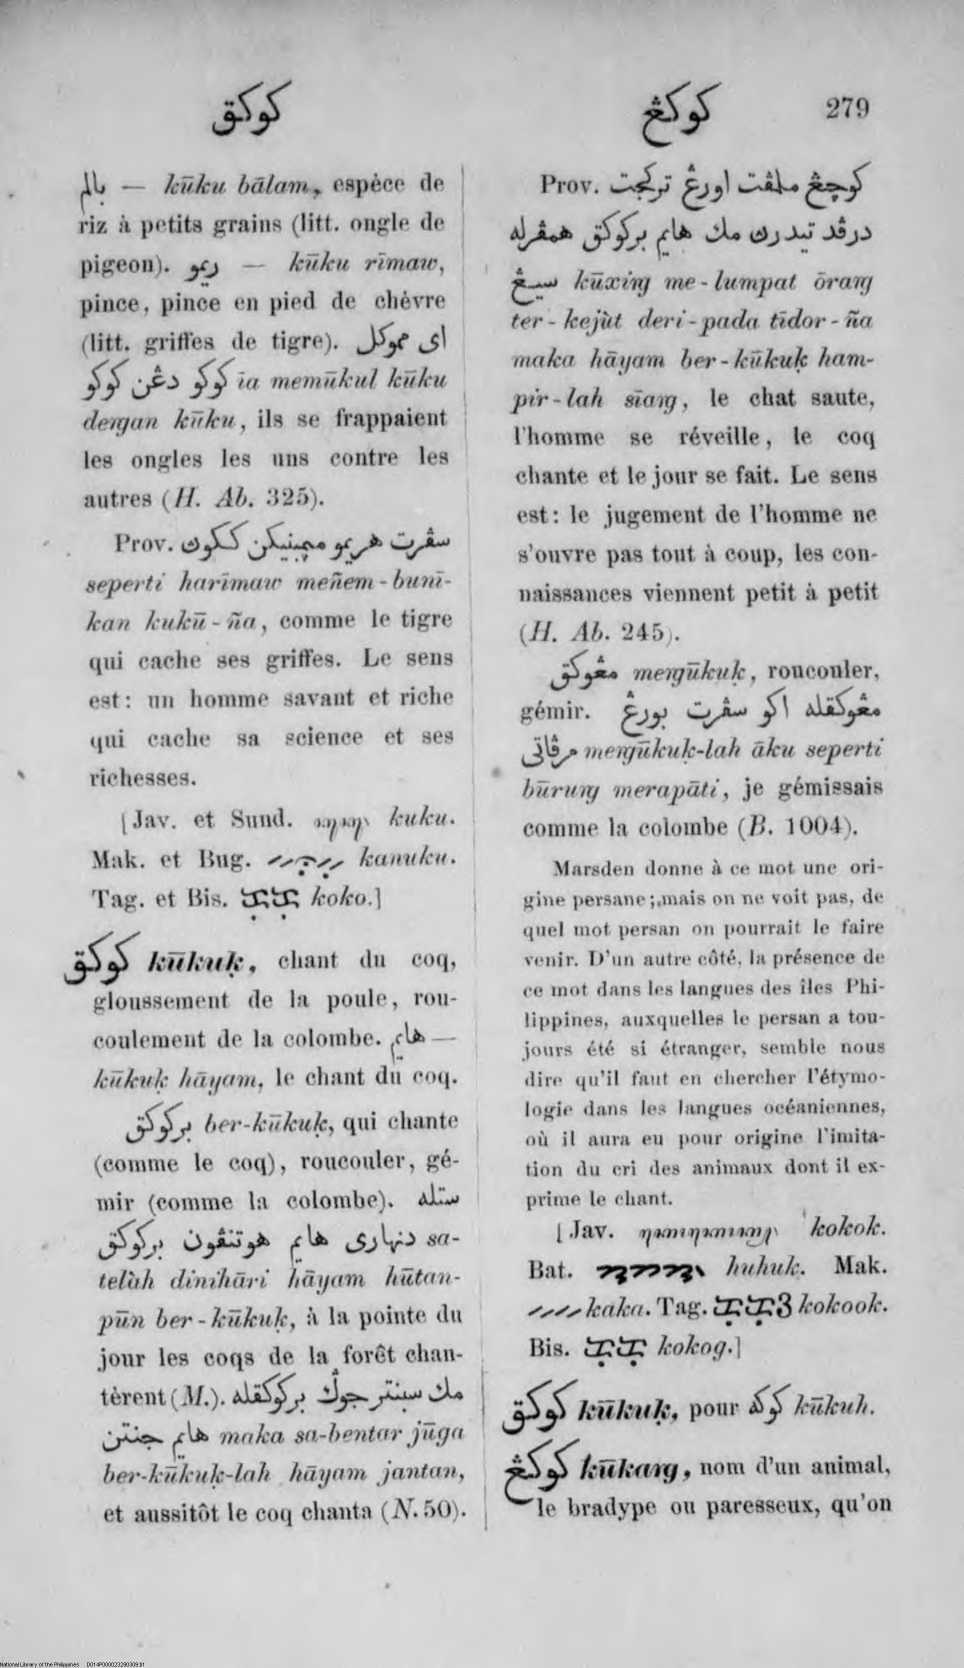 كوكق
كوكڠ 279
بالم — kūku bālam, espèce de
riz à petits grains (litt. ongle de
pigeon). ريمو — kūku rīmaw,
pince, pince en pied de chèvre
(litt. griffes de tigre). اى مموكل
كوكو دڠن كوكو īa memūkul kūku
deṅgan kūku, ils se frappaient
les ongles les uns contre les
autres (H. Ab. 325).
Prov. سڤرت هريمو مڽمبنيكن ككوڽ
seperti harīmaw meñem-bunī-
kan kukū-ña, comme le tigre
qui cache ses griffes. Le sens
est: un homme savant et riche
qui cache sa science et ses
richesses.
[Jav. et Sund. kuku.
Mak. et Bug. kanuku.
Tag. et Bis. koko.]
كوكق kūkuḳ, chant du coq,
gloussement de la poule, rou-
coulement de la colombe. هايم —
kūkuḳ hāyam, le chant du coq.
بركوكق ber-kūkuḳ, qui chante
(comme le coq), roucouler, gé-
mir (comme la colombe). ستله
دنهارى هايم هوتنڤون بركوكق sa-
telàh dinihāri hāyam hūtan-
pūn ber-kūkuḳ, à la pointe du
jour les coqs de la forêt chan-
tèrent (M.). مك سبنتر جوڬ بركوكقله
هايم جنتن maka sa-bentar jūga
ber-kūkuḳ-lah hāyam jantan,
et aussitôt le coq chanta (N. 50).
Prov. كوچڠ ملمڤت اورڠ تركجت
درڤد تيدرڽ مك هايم بركوكق همڤرله
سيڠ kūxiṅg me-lumpat ōraṅg
ter-kejùt deri-pada tīdor-ña
maka hāyam ber-kūkuḳ ham-
pir-lah sīaṅg, le chat saute,
l'homme se réveille, le coq
chante et le jour se fait. Le sens
est: le jugement de l'homme ne
s'ouvre pas tout à coup, les con-
naissances viennent petit à petit
(H. Ab. 245).
مڠوكق meṅgūkuḳ, roucouler,
gémir. مڠوكقله اكو سڤرت بورڠ
مرڤاتى meṅgūkuḳ-lah āku seperti
būruṅg merapāti, je gémissais
comme la colombe (B. 1004).
Marsden donne à ce mot une ori-
gine persane; mais on ne voit pas, de
quel mot persan on pourrait le faire
venir. D'un autre côté, la présence de
ce mot dans les langues des îles Phi-
lippines, auxquelles le persan a tou-
jours été si étranger, semble nous
dire qu'il faut en chercher l'étymo-
logie dans les langues océaniennes,
où il aura eu pour origine l'imita-
tion du cri des animaux dont il ex-
prime le chant.
[Jav. kokok.
Bat. huhuk. Mak.
kaka. Tag. kokook.
Bis. kokog.]
كوكق kūkuḳ, pour كوكه kūkuh.
كوكڠ kūkaṅg, nom d'un animal,
le bradype ou paresseux, qu'on
National Library of the Philippines